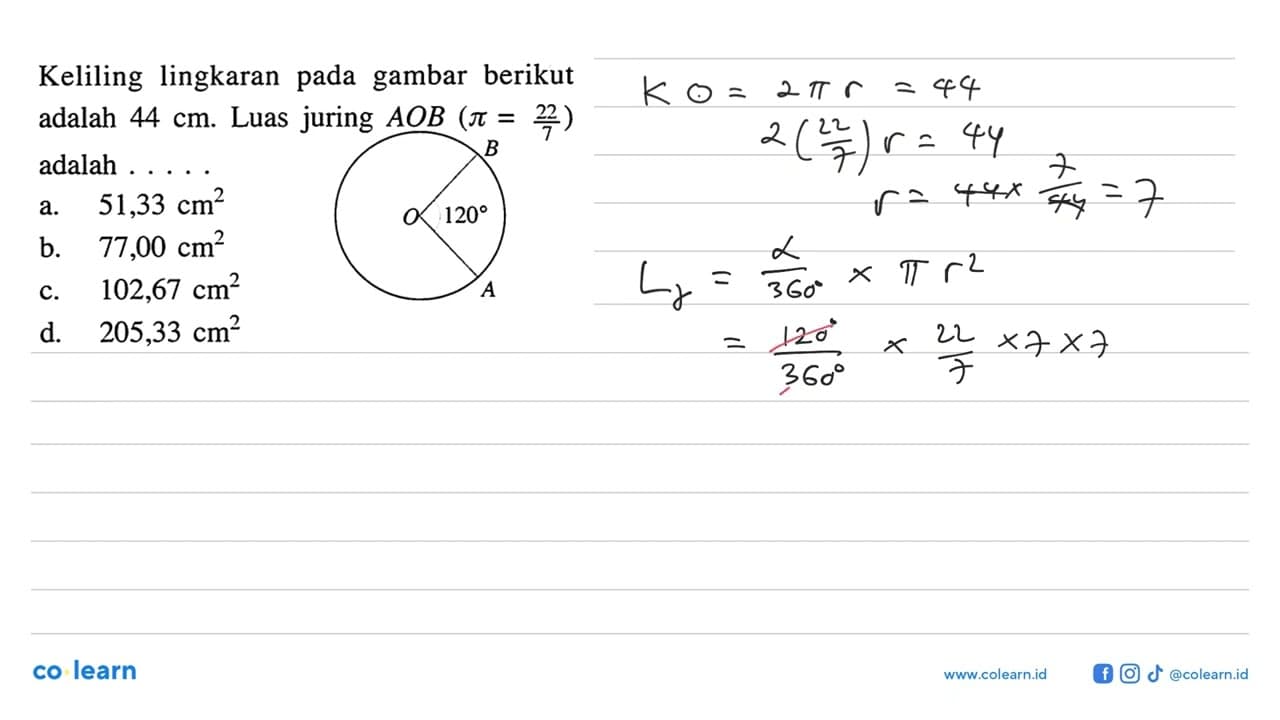 Keliling lingkaran pada gambar berikut
adalah 44 cm. Luas juring AOB (π = 22/7)
adalah . . . . .
a. 51,33 cm²
b. 77,00 cm²
c. 102,67 cm²
d. 205,33 cm²
B
O 120°
A
K ⊙ = 2 π r = 44
2 (22/7) r = 44
r = 44 × 7/44 = 7
Lj = α/360° × π r²
= 120°/360° × 22/7 × 7 × 7
co learn
www.colearn.id
@colearn.id